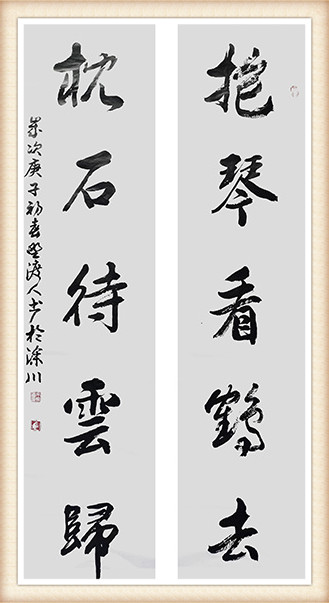 抱琴看鶴去
枕石待雲歸
歲次庚子初春野渡人書於深川